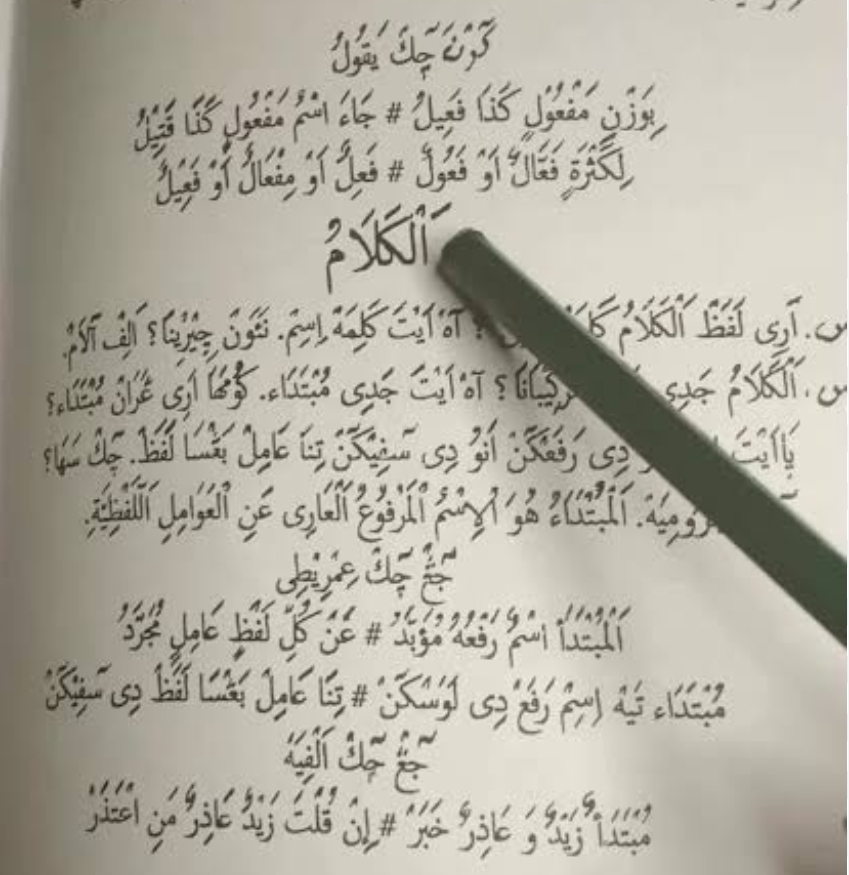 كَرْنَ چِكْ يَقُولُ
بِوَزْنِ مَفْعُولٍ كَذَا فَعِيلُ # جَاءَ اسْمُ مَفْعُولٍ كَذَا قَتِيْلُ
لِكَثْرَةٍ فَعَّالٌ اَوْ فَعُولٌ # فَعِلٌ اَوْ مِفْعَالٌ أَوْ فَعِيْلُ
اَلْكَلَامُ
س. اَرِى لَفَظْ اَلْكَلَامُ آهْ اَيْتَ كَلِمَهْ اِسِمْ. نَئَوْنْ چِيْرِيْنَا؟ اَلِفْ آلَامْ.
س. اَلْكَلَامُ جَدِى تَرْكِيْبَانَا؟ آهْ اَيْتَ جَدِى مُبْتَدَاء. كُوْمَهَا اَرِى غَرَانْ مُبْتَدَاء؟
يَااَيْتَ دِى رَفَعْكَنْ اَنُوْ دِى سَفِيْكَنْ تِنَا عَامِلْ بَغْسَا لَفَظْ. چِكْ سَهَا؟
اَلْمُبْتَدَاءُ هُوَ اْلاِسْمُ الْمَرْفُوعُ الْعَارِى عَنِ الْعَوَامِلِ اللَّفْظِيَّةِ.
جَغْ چِكْ عِمْرِيْطِى
اَلْمُبْتَدَأُ اسْمٌ رَفْعُهُ مُؤَبَّدُ # عَنْ كُلِّ لَفْظٍ عَامِلٍ مُجَرَّدُ
مُبْتَدَاء تَيَهْ اِسِمْ رَفَعْ دِى لَوَسْكَنْ # تِنَا عَامِلْ بَغْسَا لَفَظْ دِى سَفِيْكَنْ
جَغْ چِكْ اَلْفِيَهْ
مُبْتَدَأٌ زَيْدٌ وَ عَاذِرٌ خَبَرْ # اِنْ قُلْتَ زَيْدٌ عَاذِرٌ مَنِ اعْتَذَرْ